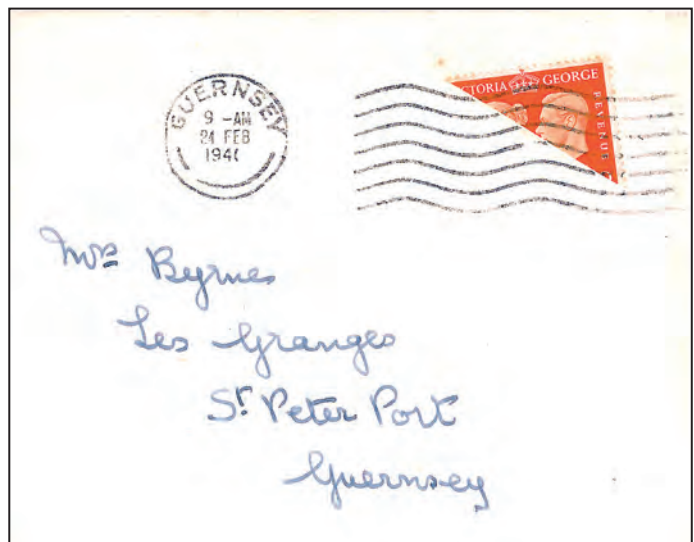 GUERNSEY
9 -AM
24 FEB
1941
CTORIA GEORGE
REVENUE
Mrs Byrnes
Les Granges
St Peter Port
Guernsey